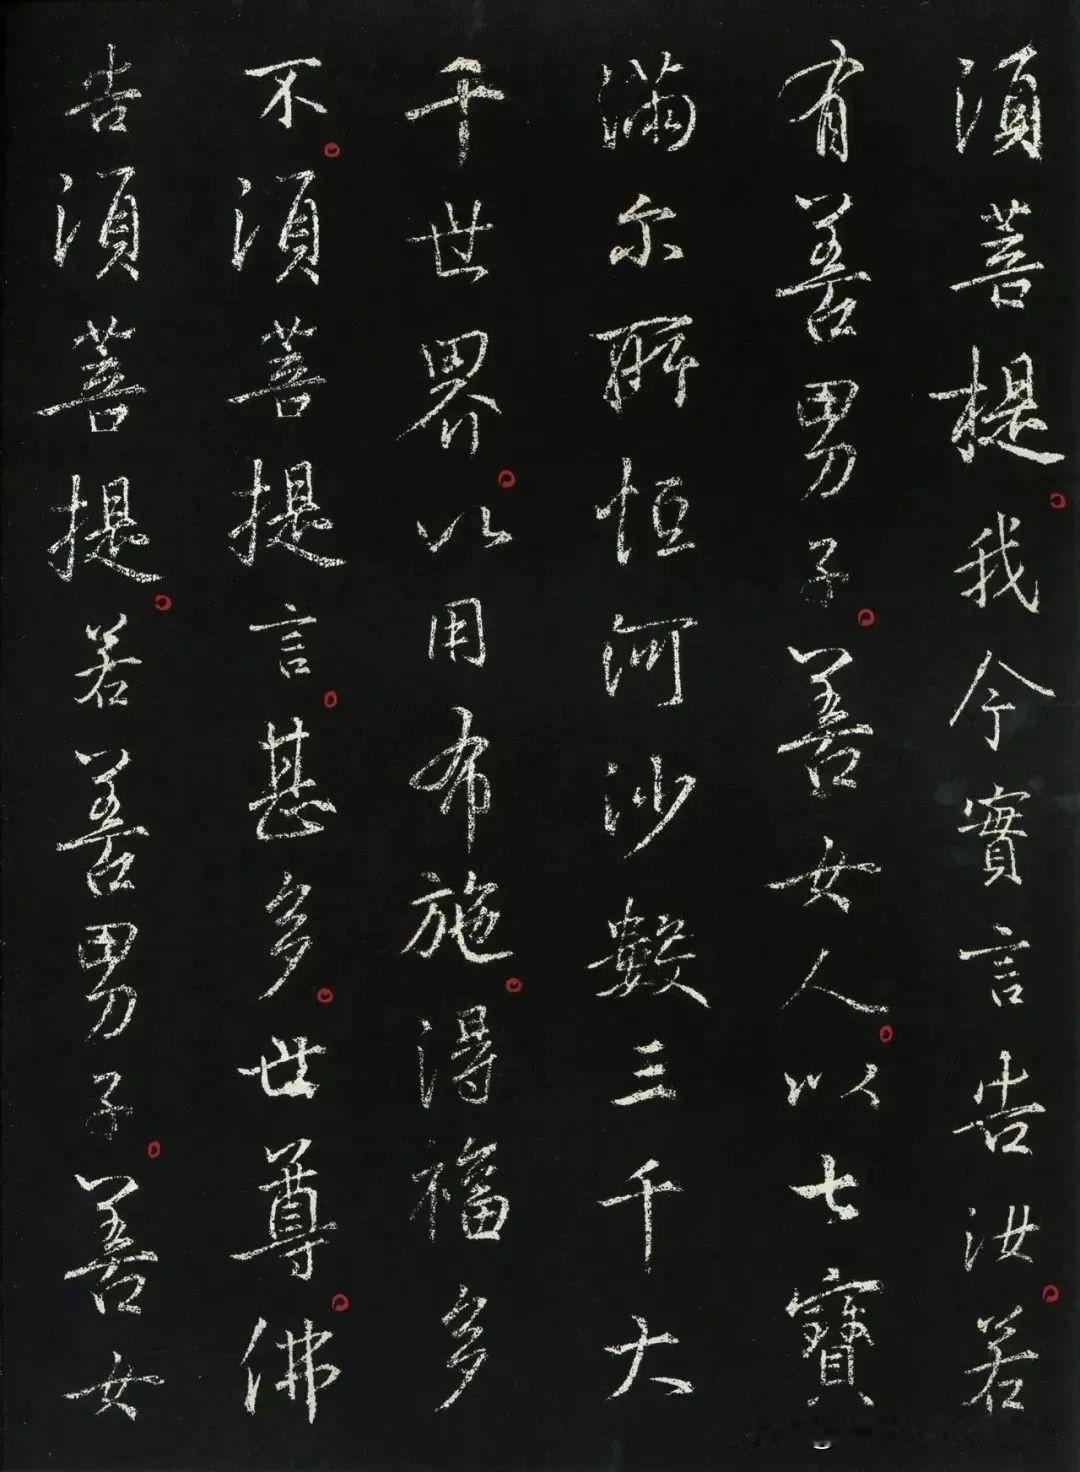 須菩提。我今實言告汝。若
有善男子。善女人。以七寶
滿尔所恒河沙數三千大
千世界。以用布施。得福多
不。須菩提言。甚多。世尊。佛
告須菩提。若善男子。善女